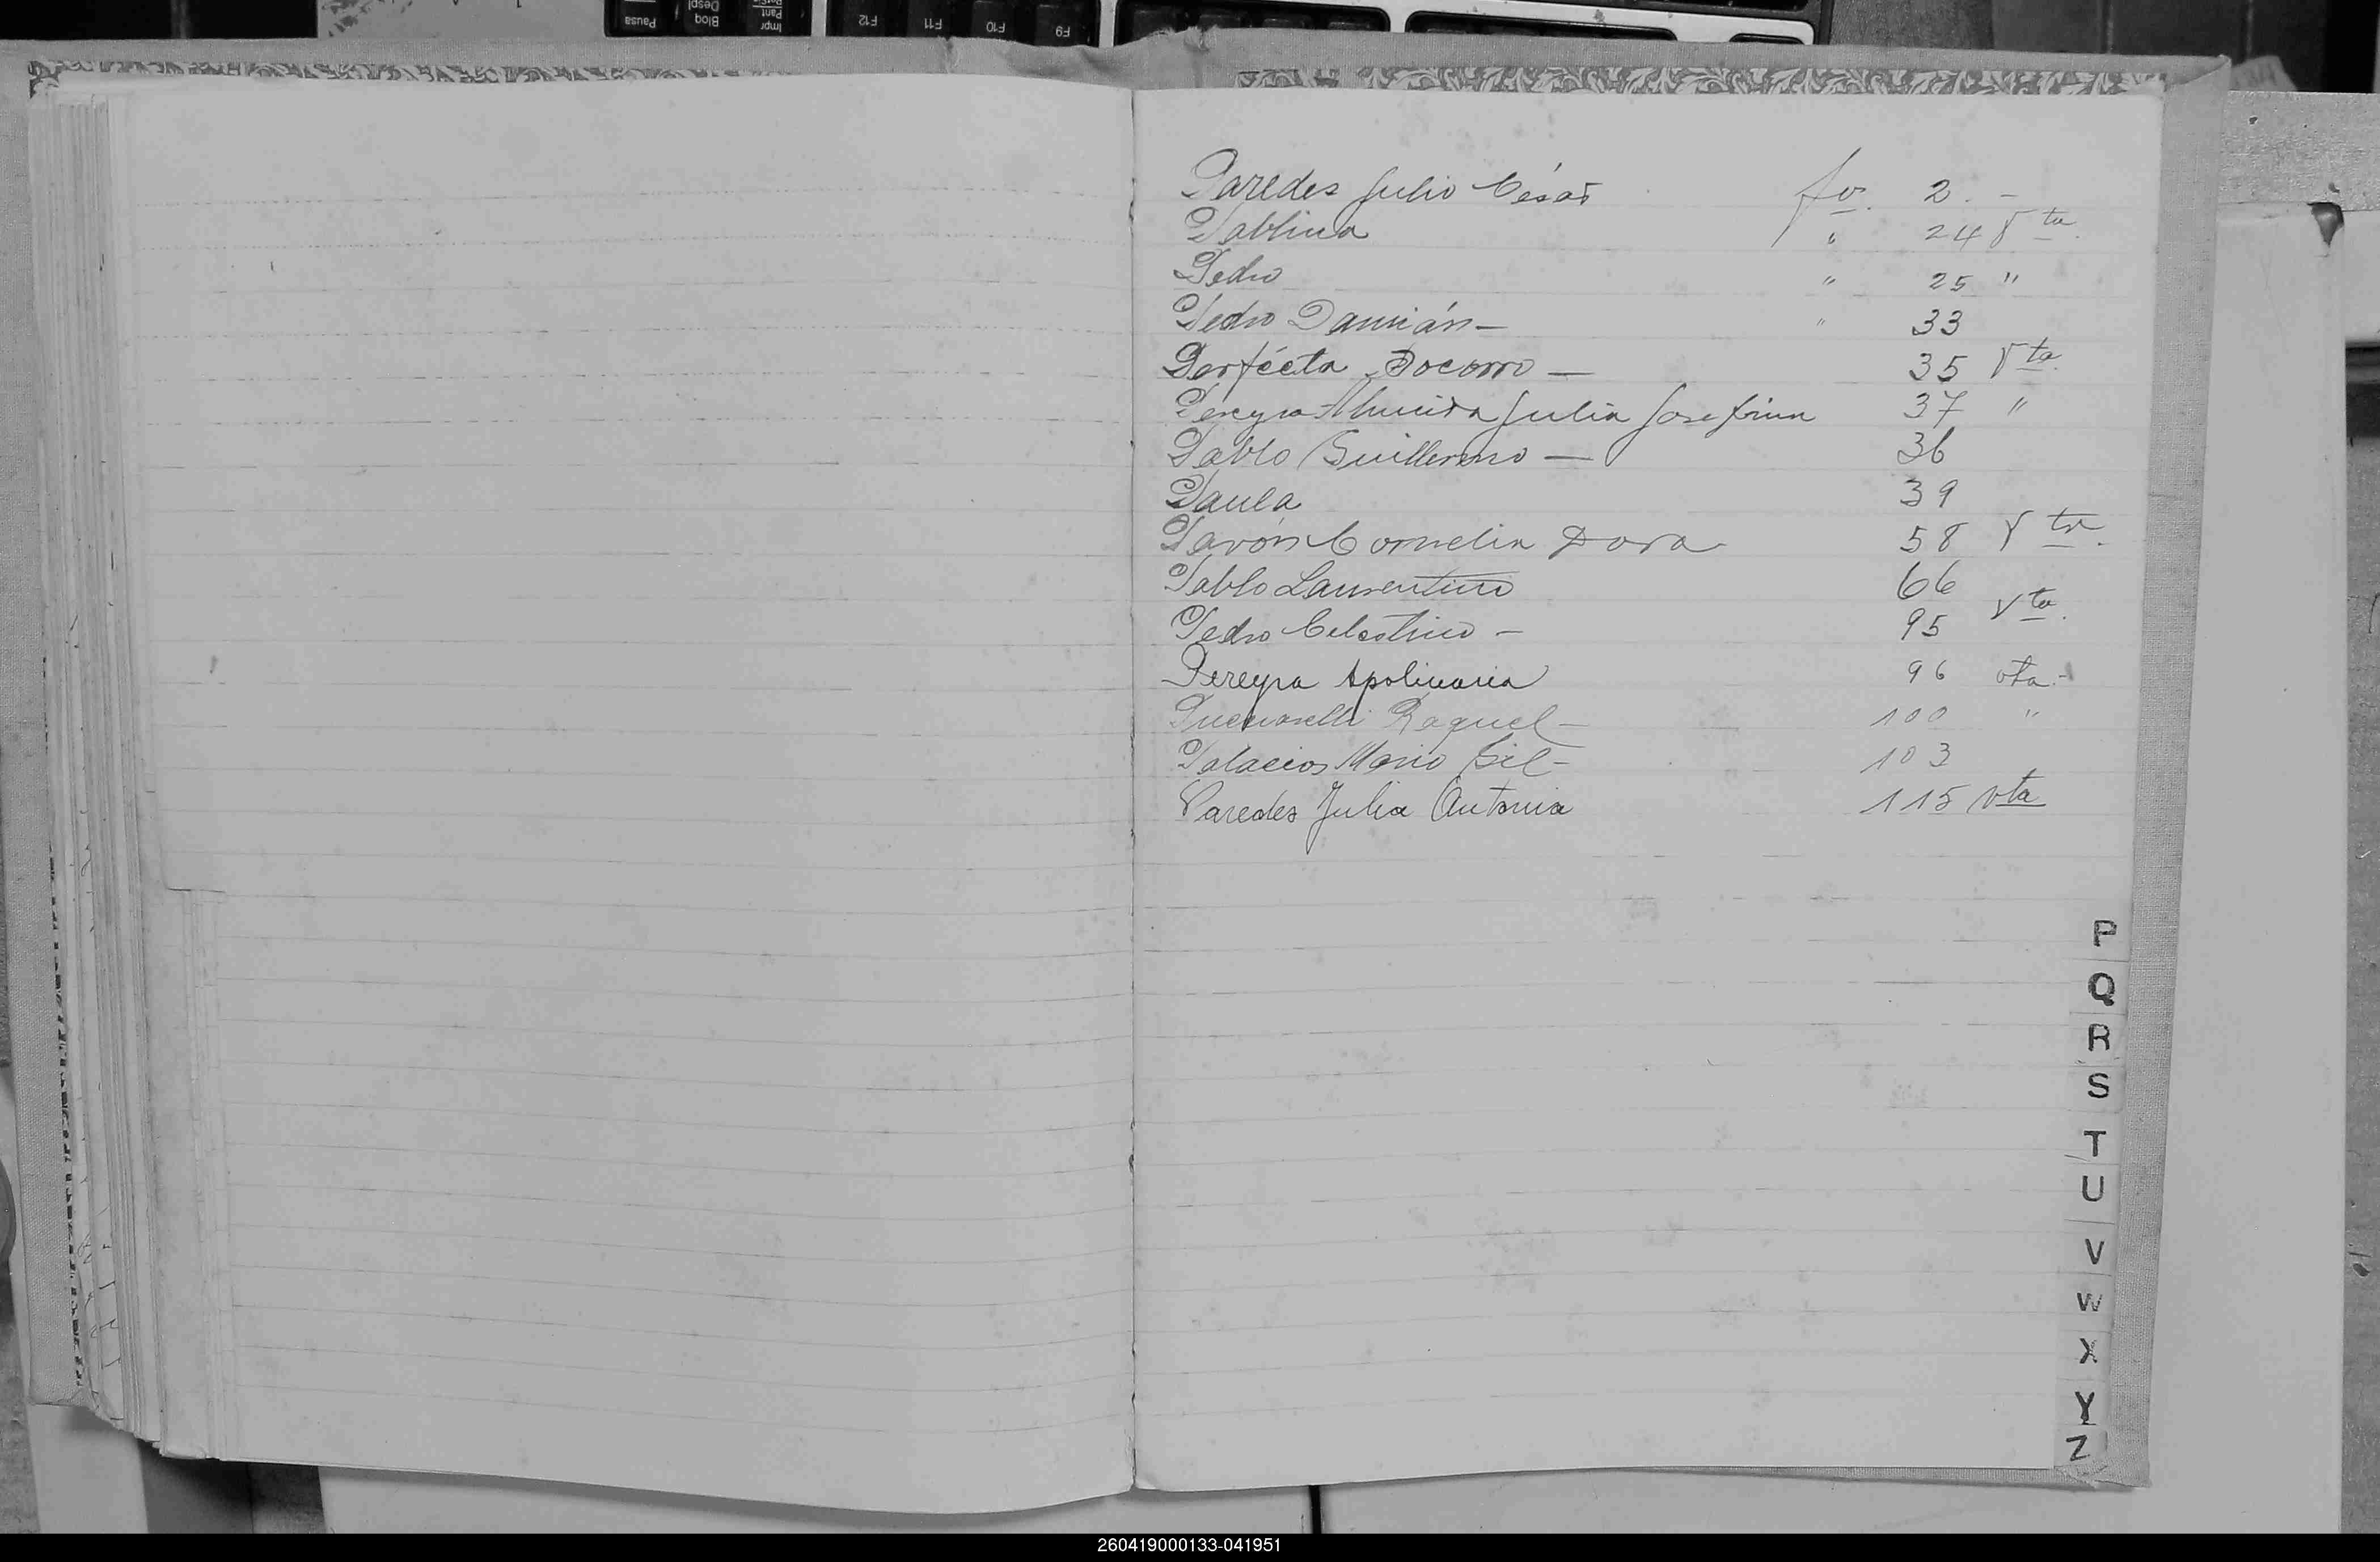 Paredes Julio César fo. 2. -
Pablina " 24 Vta.
Pedro " 25 "
Pedro Damián - " 33
Perfécta Socorro — 35 Vta.
Pereyra Almeida Julia Josefina 37 "
Pablo Guillermo — 36
Paula 39
Pavón Cornelia Dora 58 Vta.
Pablo Laurentino 66
Pedro Celestino - 95 Vta.
Pereyra Apolinaria 96 vta.-
Pucciarelli Raquel - 100 "
Palacios Mario Gil - 103
Paredes Julia Antonia 115 vta
P
Q
R
S
T
U
V
W
X
Y
Z
Pausa
Bloq
Despl
Impr
Pant
F12
F11
F10
F9
260419000133-041951